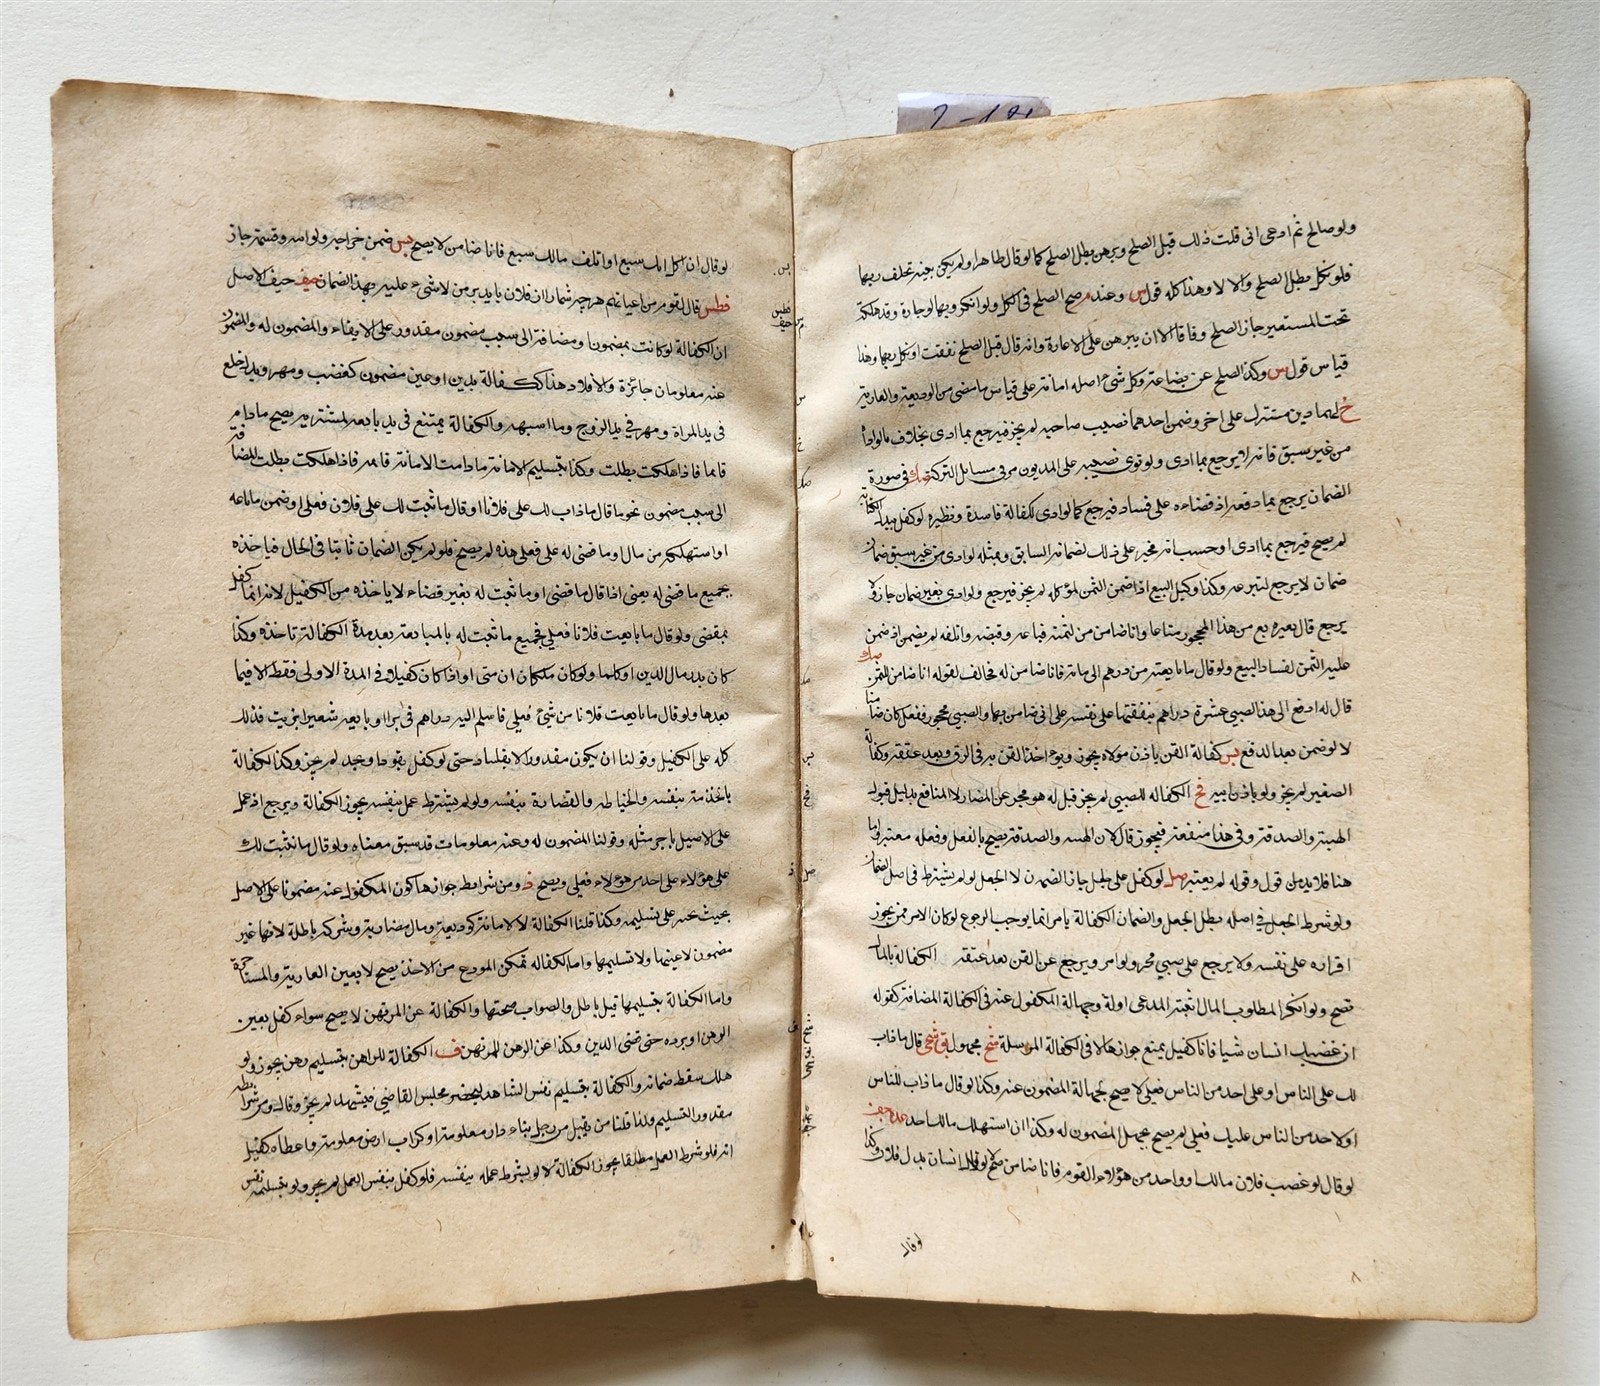 ولو صالح ثم ادعى انى قلت ذلك قبل الصلح وبرهن بطل الصلح كما لو قال ظاهرا ولم يكن بينة تحلف ربها
فلو نكل بطل الصلح والا لا وهذا كله قول س وعند م صح الصلح فى الكل ولو انكر ربها لوجارة وقد هلكت
تحت المستعير جاز الصلح وفاقا الا ان يبرهن على الاعارة وانه قال قبل الصلح نفقت او نكل ربها وهذا
قياس قول س وكذا الصلح عن بضاعة وكل شىء اصله امانة على قياس ما مضى من الوديعة والعارية
خ لهما دين مشترك على اخر وضمن احدهما نصيب صاحبه لم يجز فيرجع بما ادى بخلاف ما لو اداه
من غير سبق فانه لا يرجع بما ادى ولو توى نصيبه على المديون مر فى مسائل التركة صك فى صورة
الضمان يرجع بما دفعه اذ قضاءه على فساد فيرجع كما لو ادى لكفالة فاسدة ونظيره لو كفل ببدل الكتابة
لم يصح فيرجع بما ادى اذ حسب انه مجبر على ذلك لضمانه السابق وبمثله لو ادى من غير سبق ضمان
ضمان لا يرجع لتبرعه وكذا وكيل البيع اذا ضمن الثمن لموكله لم يجز فيرجع ولو ادى بغير ضمان جاز ولا
يرجع قال بعيره بع من هذا المحجور متاعا وانا ضامن من لثمنه فباعه وقبضه واتلفه لم يضمن اذ ضمن
عليه الثمن لفساد البيع ولو قال ما بايعته من درهم الى مائة فانا ضامن له فخالف لقوله انا ضامن للثمن صك
قال له ادفع الى هذا الصبى عشرة دراهم ينفقها على نفسه على انى ضامن بها والصبى محجور ففعل كان ضامنا
لا لو ضمن بعد الدفع بس كفالة القن باذن مولاه يجوز ويؤاخذ القن به فى الرق وبعد عتقه وكفالة
الصغير لم يجز ولو باذن ابيه فخ الكفالة للصبى لم يجز قبل له هو محجر عن المضار لا المنافع بدليل قبوله
الهبة والصدقة وفى هذا منفعة فيجوز قال لان الهبة والصدقة يصح بالفعل وفعله معتبر واما
هنا فلا بد من قول وقوله لم يعتبر صل لو كفل على جعل جاز الضمان لا الجعل لو لم يشترط فى اصل الضمان
ولو شرط الجعل فى اصله بطل الجعل والضمان الكفالة بامر انما يوجب الرجوع لو كان الامر ممن يجوز
اقراره على نفسه ولا يرجع على صبى محجور ولو امر ويرجع عن القن بعد عتقه الكفالة بالمال
تصح ولو انكر المطلوب المال اثبته المدعى اولا وجهالة المكفول عنه فى الكفالة المضافة كقوله
ان غصبك انسان شيا فانا كفيل يمنع جوازها لا فى الكفالة المرسلة قال ما ذاب
لك على الناس او على احد من الناس فعلى لا يصح لجهالة المضمون عنه وكذا لو قال ما ذاب للناس
او لاحد من الناس عليك فعلى لم يصح لجهل المضمون له وكذا ان استهلك مالك احد
لو قال لو غصب فلان مالك او واحد من هؤلاء القوم فانا ضامن صح لو قال انسان بدل فلان وكذا
لو قال
لو قال ان اكل ابنك سبع او اتلف مالك سبع فانا ضامن لا يصح بس ضمن خراجه ونوائبه وقسمته جاز
فطس قال لقوم من اعيانهم هرچه شمارا از فلان بايد بر من لا شىء عليه بهذا الضمان حيف الاصل
ان الكفالة لو كانت بمضمون او مضافة الى سبب مضمون مقدور على الايفاء والمضمون له والمضمون
عنه معلومان جائزة والا فلا وهذا ككفالة بدين او عين مضمون كغصب ومهر وبدل خلع
فى يد المراة ومهر فى يد الزوج وما اشبهه والكفالة بمبيع فى يد بايعه لمشتريه يصح ما دام
قائما فاذا هلكت بطلت وكذا بتسليم الامانة ما دامت الامانة قائمة فاذا هلكت بطلت المضافة
الى سبب مضمون نحو ما قال ما ذاب لك على فلانا او قال ما ثبت لك على فلان فعلى او ضمن ما باعه
او استهلكه من مال او ما قضى له على فعلى هذه لم يصح فلو لم يكن الضمان ثابتا فى الحال فياخذه
بجميع ما قضى له يعنى اذا قال ما قضى او ما ثبت له بغير قضاء لا ياخذه من الكفيل لانه انما كفل
بمقضى ولو قال ما بايعت فلانا فعلى فجميع ما ثبت له بالمبايعة بعد مدة الكفالة تاخذه وكذا
كان بدل مال الدين او كلما ولو كان مكان ان متى او اذا كان كفيلا فى المدة الاولى فقط لا فيما
بعدها ولو قال ما بايعت فلانا من شىء فعلى فاسلم اليه دراهم فى برا او بايعه شعيرا بزيت فذلك
كله على الكفيل وقولنا ان يكون مقدورا لا بقلبا حتى لو كفل بقود او بحد لم يجز وكذا لكفالة
بالخدمة بنفسه والخياطة والقصارة بنفسه ولو لم يشترط عمل بنفسه يجوز الكفالة ويرجع اذ عمل
على الاصيل باجر مثله وقولنا المضمون له وعنه معلومات قد سبق معناه ولو قال ما ثبت لك
على هؤلاء على احد من هؤلاء فعلى ويصح ذ ومن شرائط جوازها كون المكفول عنه مضمونا على الاصل
بحيث يجبر على تسليمه وكذا قلنا الكفالة لا لامانة كوديعة ومال مضاربة وشركة باطلة لانها غير
مضمون لا عينها ولا تسليمها واما الكفالة بتمكن المودع من الاخذ يصح لا بعين العارية والمستاجرة
واما الكفالة بتسليمها قيل باطل والصواب صحتها والكفالة عن المرتهن لا يصح سواء كفل بعين
الرهن او برده حتى قضى الدين وكذا عن الرهن للمرتهن ف الكفالة للراهن بتسليم رهن يجوز ولو
هلك سقط ضمانه والكفالة بتسليم نفس الشاهد ليحضر مجلس القاضى فيشهد لم يجز وقال ومن شرائطه
مقدور التسليم ولذا قلنا من يقبل من رجل بناء دار معلومة او كراب ارض معلومة واعطاه كفيل
انه فلو شرط العمل مطلقا يجوز الكفالة لا لو شرط عمله بنفسه فلو كفل بنفس العمل لم يجز ولو بتسليمه نفس